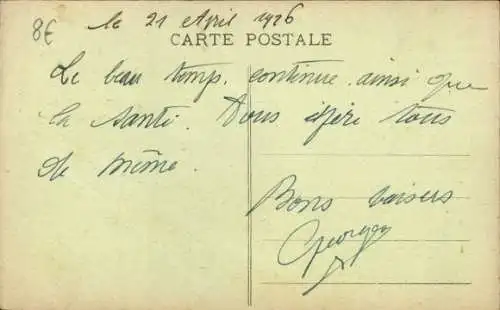 8€
le 21 Avril 1926
CARTE POSTALE
Le beau temps continue ainsi que
la santé. Vous espère tous
de même.
Bons baisers
Georges